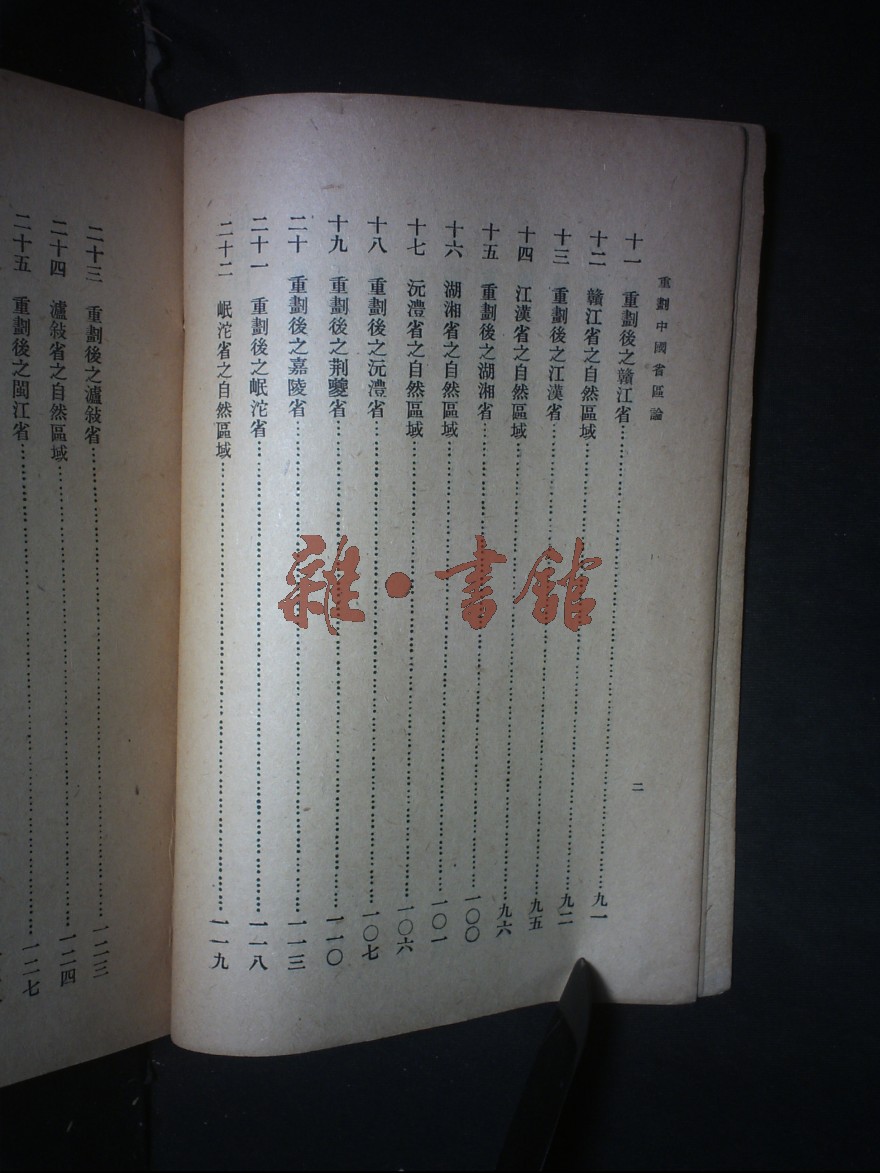 重劃中國省區論
二
十一 重劃後之贛江省…九一
十二 贛江省之自然區域…九二
十三 重劃後之江漢省…九五
十四 江漢省之自然區域…九六
十五 重劃後之湖湘省…一〇〇
十六 湖湘省之自然區域…一〇一
十七 沅澧省之自然區域…一〇六
十八 重劃後之沅澧省…一〇七
十九 重劃後之荆夔省…一一〇
二十 重劃後之嘉陵省…一一三
二十一 重劃後之岷沱省…一一八
二十二 岷沱省之自然區域…一一九
二十三 重劃後之瀘敍省…一二三
二十四 瀘敍省之自然區域…一二四
二十五 重劃後之閩江省…一二七
雜·書館